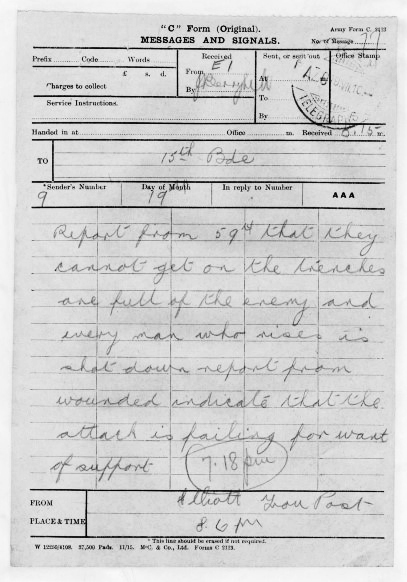 "C" Form (Original).
Army Form C. 2123
MESSAGES AND SIGNALS.
No. of Message
Prefix Code Words
Received
Sent, or sent out
Office Stamp
£ s. d.
From E1
At
Charges to collect
By
To
Service Instructions.
By
TELEGRAPHS
Handed in at Office m. Received 8.15 m.
TO 15th Bde
*Sender's Number
Day of Month
In reply to Number
AAA
9
19
Report from 59th that they
cannot get on the trenches
are full of the enemy and
every man who rises is
shot down report from
wounded indicate that the
attack is failing for want
of support 7.18 pm
FROM Elliott Iron Post
PLACE & TIME 8.6 PM
* This line should be erased if not required.
W 12236/4108. 37,500 Pads. 11/15. McC. & Co., Ltd. Forms C 2123.